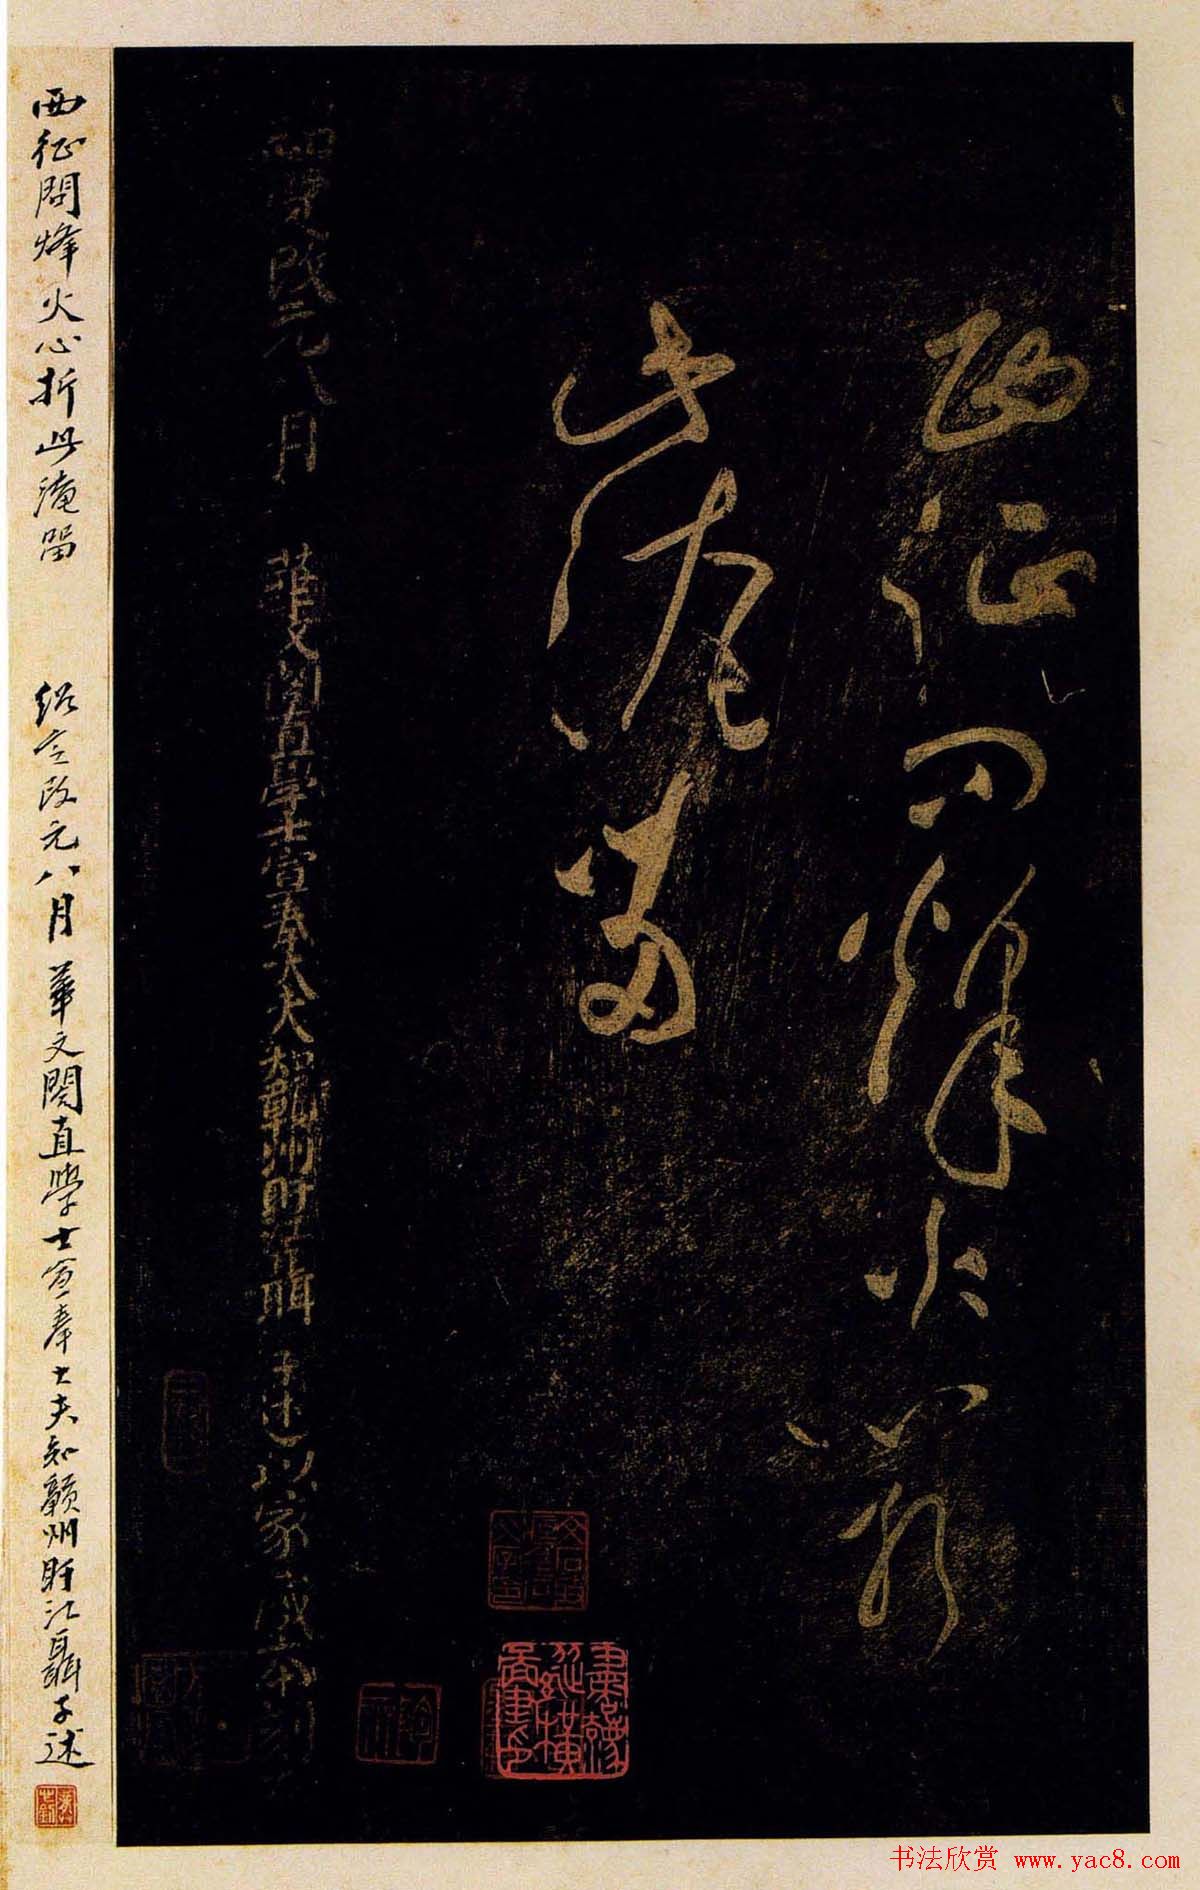 西征問烽火心折
此淹留
紹定改元八月 華文閣直學士宣奉大夫知贛州盱江聶子述以家藏本刻
西征問烽火心折此淹留 紹定改元八月華文閣直學士宣奉大夫知贛州盱江聶子述
书法欣赏 www.yac8.com